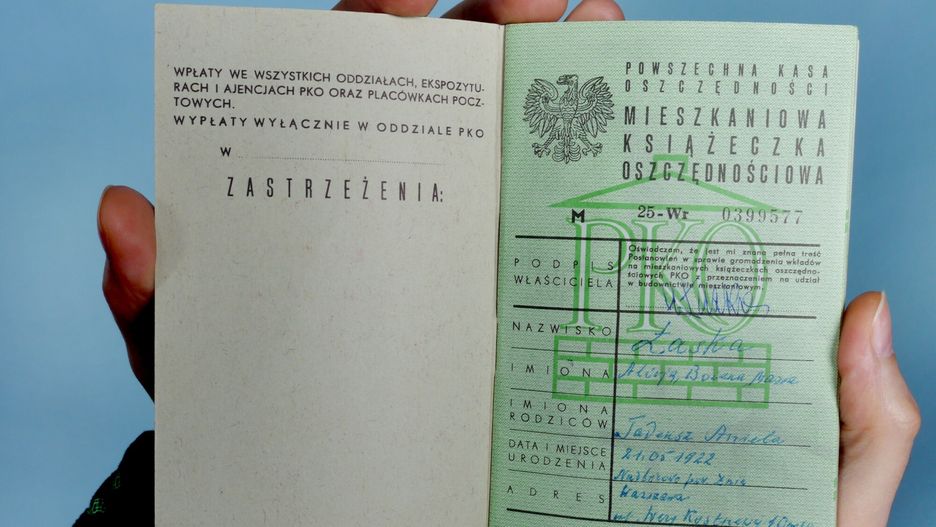 WPŁATY WE WSZYSTKICH ODDZIAŁACH, EKSPOZYTU-
RACH I AJENCJACH PKO ORAZ PLACÓWKACH POCZ-
TOWYCH.
WYPŁATY WYŁĄCZNIE W ODDZIALE PKO
W
ZASTRZEŻENIA:
POWSZECHNA KASA
OSZCZĘDNOŚCI
MIESZKANIOWA
KSIĄŻECZKA
OSZCZĘDNOŚCIOWA
M 25-Wr 0399577
PKO
PODPIS
WŁAŚCICIELA
Oświadczam, że jest mi znana pełna treść
Postanowień w sprawie gromadzenia wkładów
na mieszkaniowych książeczkach oszczędno-
ściowych PKO z przeznaczeniem na udział
w budownictwie mieszkaniowym.
NAZWISKO Łaska
IMIONA Alicja Bożena
IMIONA
RODZICÓW Tadeusz Aniela
DATA I MIEJSCE
URODZENIA 21.05.1922
ADRES Warszawa